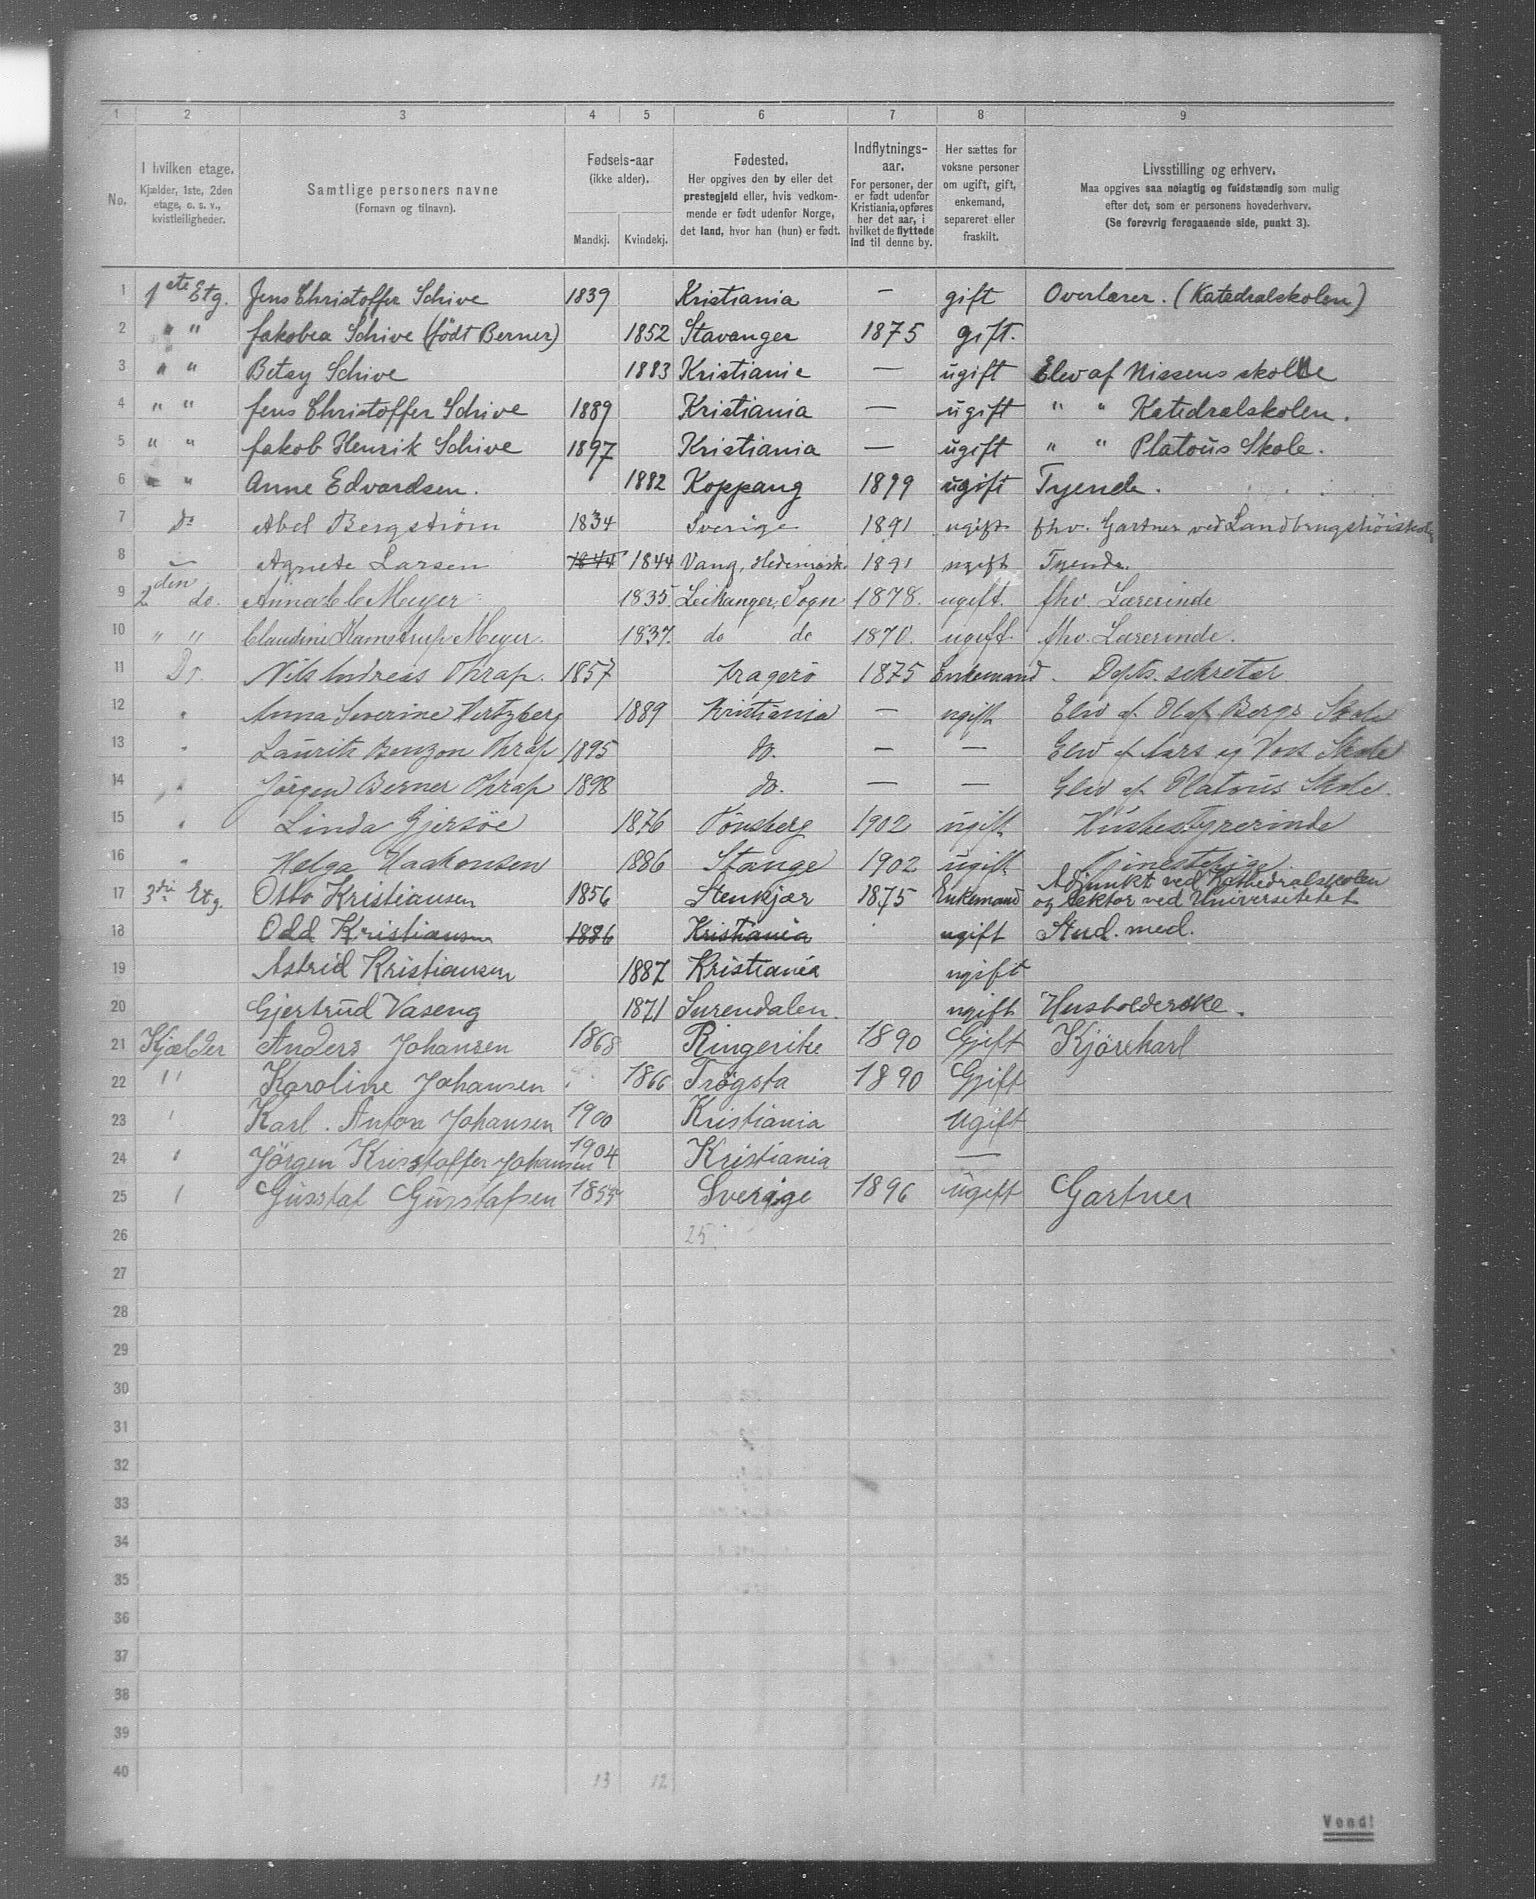 1 2 3 4 5 6 7 8 9
No.
I hvilken etage.
Kjælder, 1ste, 2den etage, o. s. v., kvistleiligheder.
Samtlige personers navne
(Fornavn og tilnavn).
Fødsels-aar
(ikke alder).
Mandkj. Kvindekj.
Fødested.
Her opgives den by eller det
prestegjeld eller, hvis vedkom-
mende er født udenfor Norge,
det land, hvor han (hun) er født.
Indflytnings-
aar.
For personer, der
er født udenfor
Kristiania, opføres
her det aar, i
hvilket de flyttede
ind til denne by.
Her sættes for
voksne personer
om ugift, gift,
enkemand,
separeret eller
fraskilt.
Livsstilling og erhverv.
Maa opgives saa nøiagtig og fuldstændig som mulig
efter det, som er personens hovederhverv.
(Se forøvrig foregaaende side, punkt 3).
1 1ste Etg. Jens Christoffer Schive 1839 Kristiania — gift Overlærer. (Katedralskolen)
2 " " Jakobea Schive (født Berner) 1852 Stavanger 1875 gift.
3 " " Betsy Schive 1883 Kristiania — ugift Elev af Nissens skole
4 " " Jens Christoffer Schive 1889 Kristiania — ugift " " Katedralskolen.
5 " " Jakob Henrik Schive 1897 Kristiania — ugift " " Platoŭs Skole.
6 " " Anne Edvardsen. 1882 Koppang 1899 ugift Tyende.
7 Do Abel Bergström 1834 Sverige 1891 ugift fhv. Gartner ved Landbrugshöiskolen
8 — Agnete Larsen 1844 1844 Vang, Hedemark. 1891 ugift Tyende.
9 2den do. Anna Meyer 1835. Leikanger, Sogn 1878. ugift. fhv. Lærerinde
10 " " Claudine Kamstrup Meyer. 1837. do do 1870. ugift. fhv. Lærerinde.
11 Do Nils Andreas Thrap. 1857 Kragerö 1875 Enkemand. Depts. sekretær
12 " Anna Severine Hertzberg 1889 Kristiania — ugift Elev af Olaf Bergs Skole
13 " Laŭritz Benzon Thrap 1895 do. — — Elev af Lars og Voss Skole
14 " Jörgen Berner Thrap 1898 do. — — Elev af Platoŭs Skole.
15 " Linda Gjersöe 1876 Tönsberg 1902 ugift. Hŭsbestyrerinde
16 " Helga Haakonsen 1886 Stange 1902 ugift. Tjenestepige
17 3die Etg. Otto Kristiansen 1856 Stenkjær 1875 Enkemand Adjunkt ved Kathedralskolen
og Lektor ved Universitetet
18 Odd Kristiansen 1886 Kristiania ugift Stud. med.
19 Astrid Kristiansen 1887 Kristiania ugift
20 Gjertrŭd Vaseng 1871 Surendalen. ugift Husholderske.
21 Kjælder Anders Johansen 1868 Ringerike 1890 Gjift Kjörekarl
22 " Karoline Johansen 1866 Trögsta 1890 Gjift
23 " Karl. Anton Johansen 1900 Kristiania Ugift
24 " Jörgen Kristoffer Johansen 1904 Kristiania —
25 " Gŭsstaf Gŭsstafsen 1855 Sverige 1896 ugift Gartner
26 25.
27
28
29
30
31
32
33
34
35
36
37
38
39
40 13 12
Vend!